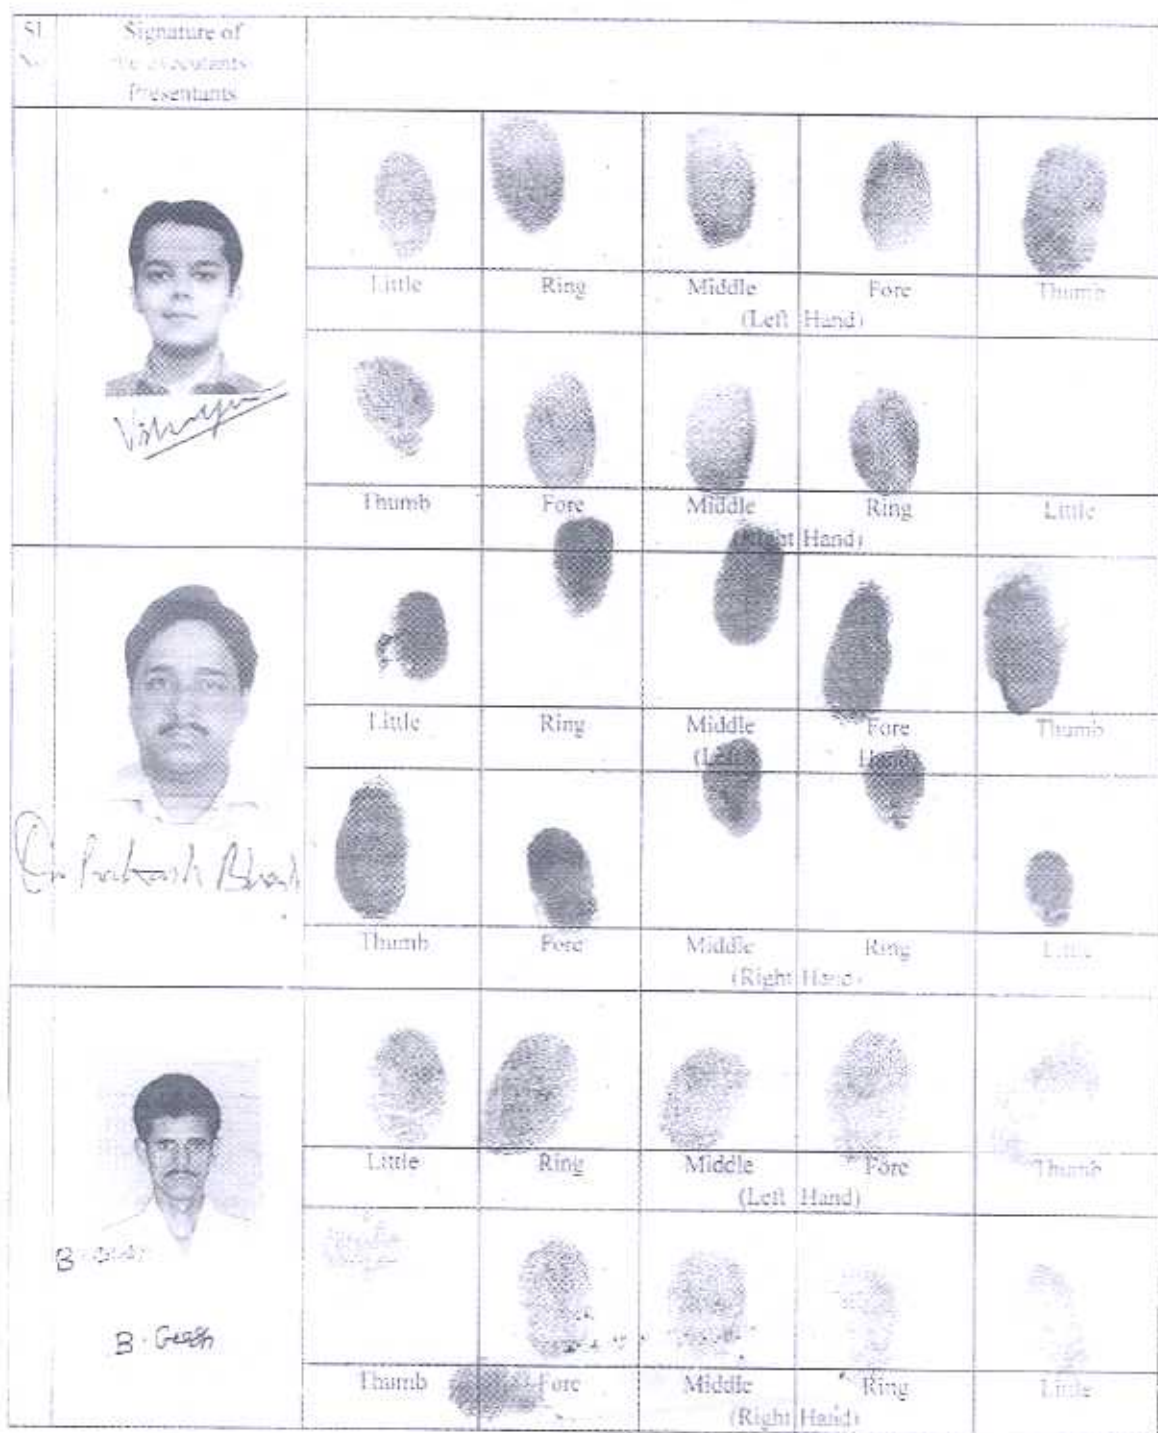 Sl. Signature of
No. the executants
Presentants
Little Ring Middle Fore Thumb
(Left Hand)
Thumb Fore Middle Ring Little
(Right Hand)
Little Ring Middle Fore Thumb
(Left Hand)
Prakash
Thumb Fore Middle Ring Little
(Right Hand)
Little Ring Middle Fore Thumb
(Left Hand)
B.
B.
Thumb Fore Middle Ring Little
(Right Hand)